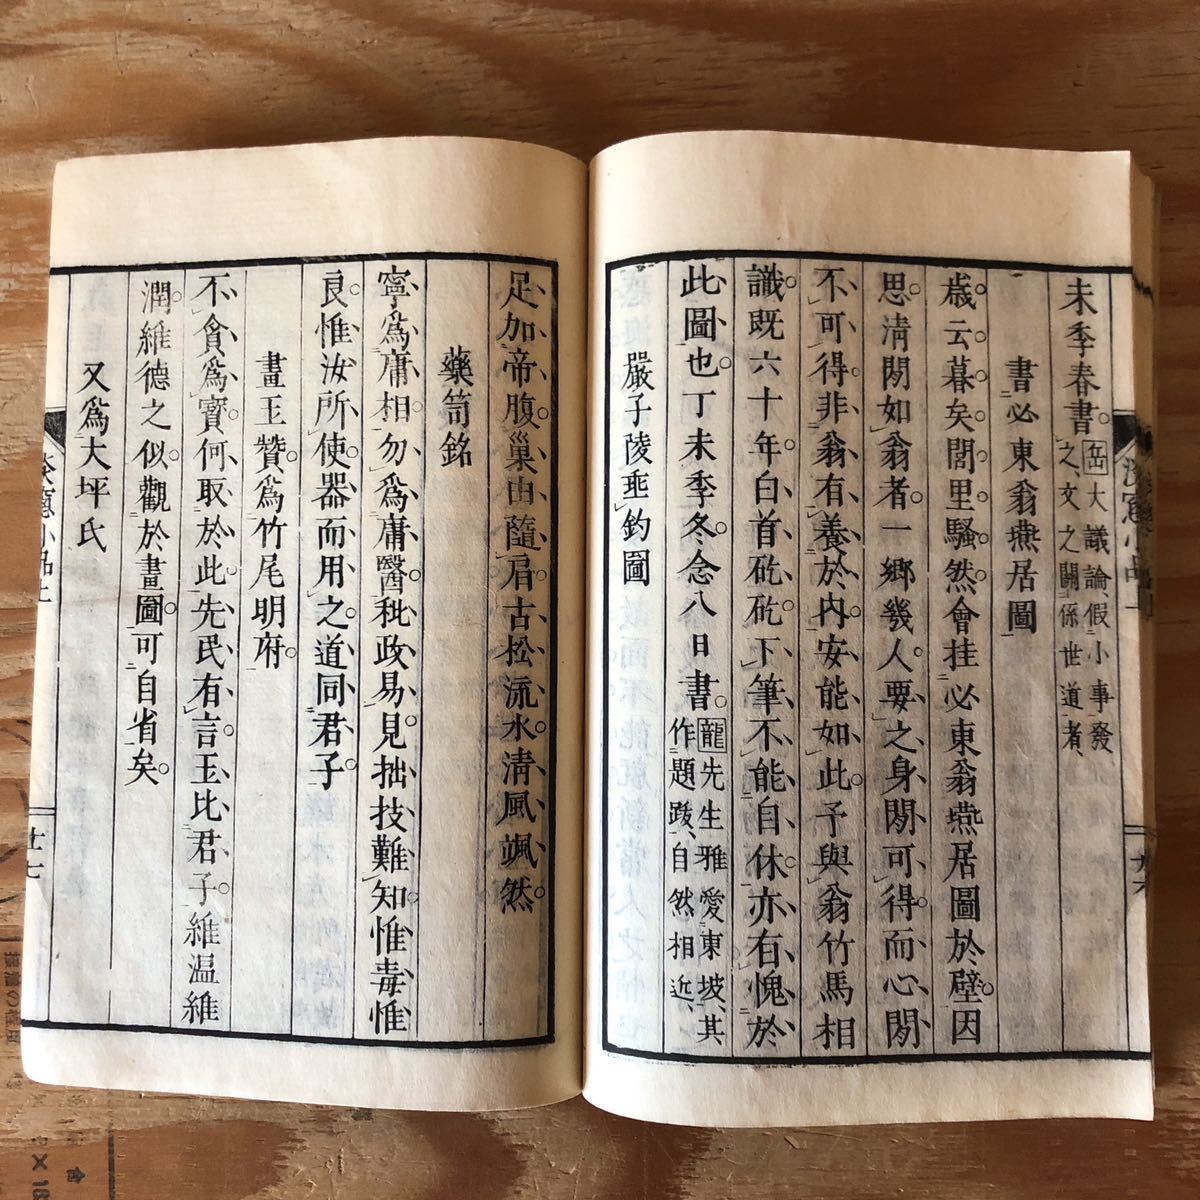 未季春書。岳大議論、假小事發
之、文之關係世道者、
書必東翁燕居圖
歳云暮矣。閭里騷然。會挂必東翁燕居圖於壁。因
思清閒如翁者。一鄉幾人。要之身閒可得。而心閒
不可得。非翁有養於内。安能如此。予與翁竹馬相
識。既六十年。白首矻矻。下筆不能自休。亦有愧於
此圖也。丁未季冬。念八日書。龍先生雅愛東坡、其
作題跋、自然相近、
嚴子陵垂釣圖
足加帝腹。巢由隨肩。古松流水。清風颯然。
藥笥銘
寧爲庸相。勿爲庸醫。秕政易見。拙技難知。惟毒惟
良。惟汝所使。器而用之。道同君子。
畫玉贊。爲竹尾明府。
不貪爲寶。何取於此。先民有言。玉比君子。維温維
潤。維德之似。觀於畫圖。可自省矣。
又爲大坪氏
小品上
廿七